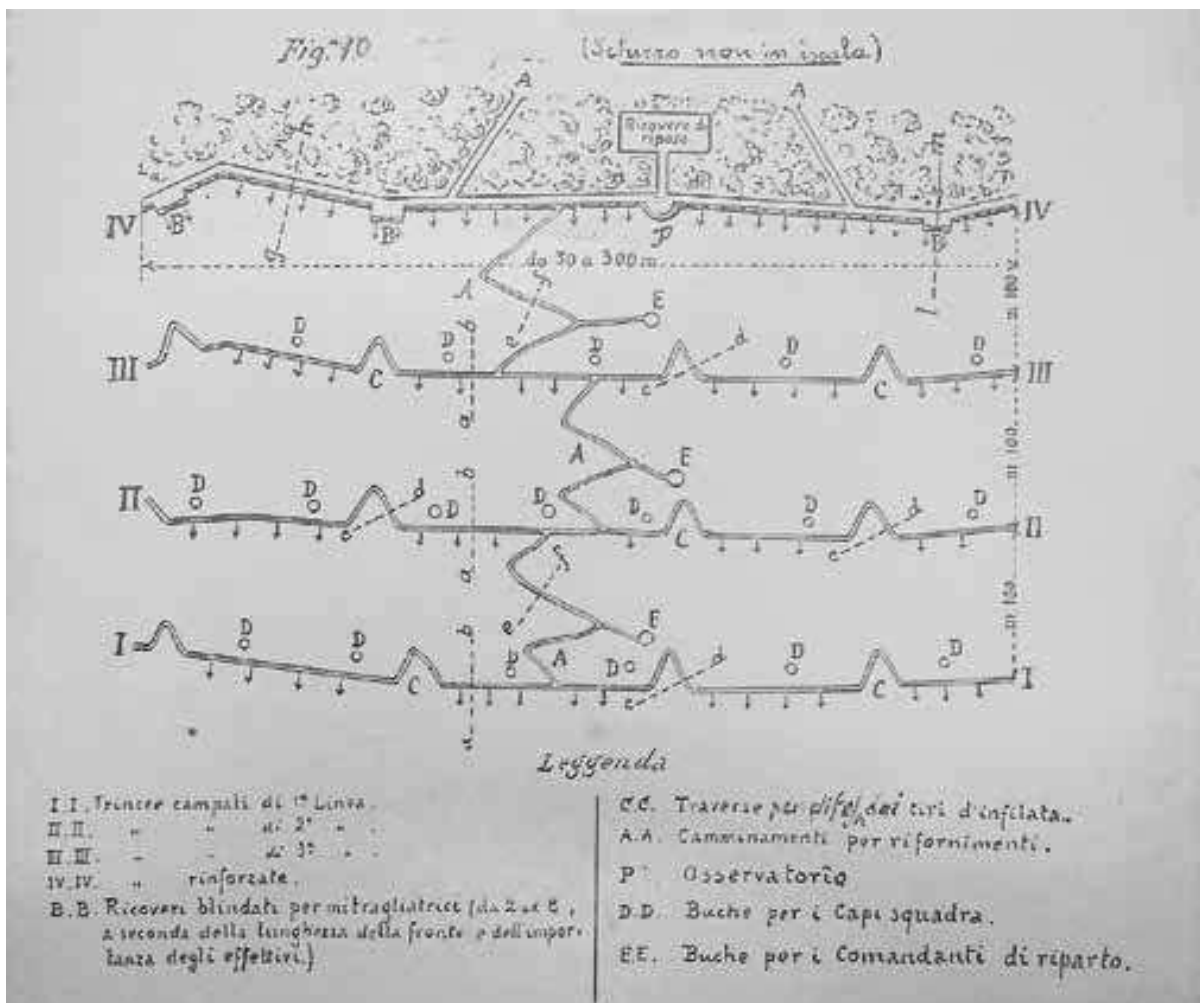 Fig.ª 10
(Schizzo non in iscala)
A
A
Ricovero di
riposo
IV
B
g
B
P
B
m
l
IV
da 50 a 300 m
A
f
e
E
m 100
III
D
C
D
b
a
D
c
d
D
C
D
III
A
E
m 100
II
D
D
d
c
D
b
a
D
D
C
D
d
c
D
II
f
e
E
m 150
I
D
D
C
b
a
D
A
D
c
d
D
C
D
I
Leggenda
I.I. Trincee campali di 1ª Linea.
II.II. " " di 2ª " .
III.III. " " di 3ª " .
IV.IV. " rinforzate.
B.B. Ricoveri blindati per mitragliatrici (da 2 a 8,
a seconda della lunghezza della fronte e dell'impor-
tanza degli effettivi.)
C.C. Traverse per dai tiri d'infilata.
A.A. Camminamenti per rifornimenti.
P Osservatorio
D.D. Buche per i Capi squadra.
E.E. Buche per i Comandanti di riparto.